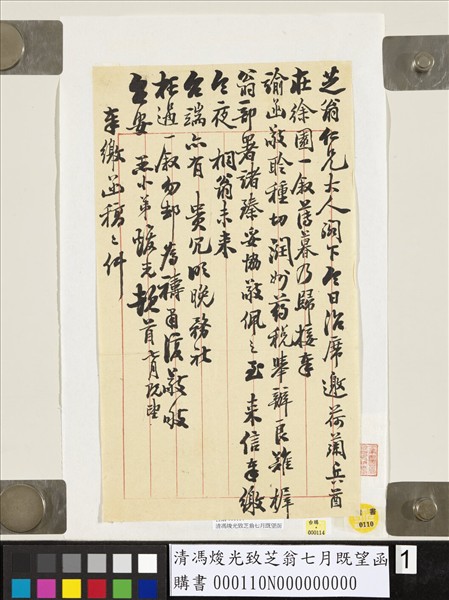 芝翁仁兄大人閣下今日治席邀荷蘭兵酋
在徐園一叙薄暮乃歸接奉
諭函敬聆種切潤州藥税舉辦良難樨
翁一部署諸臻妥協敬佩之至來信奉繳
今夜桐翁未來
台端亦有貴冗明晚務祈
枉過一叙勿却為禱肅復敬頌
台安 愚小弟煖光頓首七月既望
奉繳函稿之件
台購
000114
書
0110
清馮焌光致芝翁七月既望函
清馮焌光致芝翁七月既望函
購書 000110N000000000
1